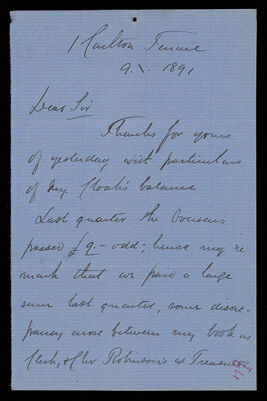 1 Carlton Terrace
9.X.1891
Dear Sir
Thanks for yours
of yesterday with particulars
of my balance
Last quarter the Overseers
passed £9.- odd; hence my re
mark that we paid a large
sum last quarter, some discre-
pancy arose between my book as
Clerk, & Chr Robinson's as Treasurer